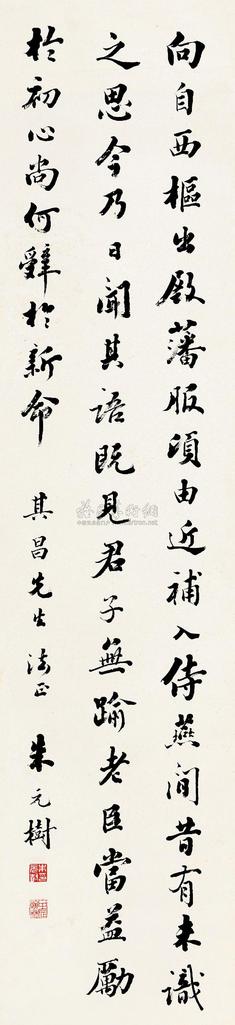 向自西樞出殿藩服頃由近補入侍燕間昔有未識
之思今乃日聞其語既見君子無踰老臣當益勵
於初心尚何辭於新命
其昌先生法正
朱元樹